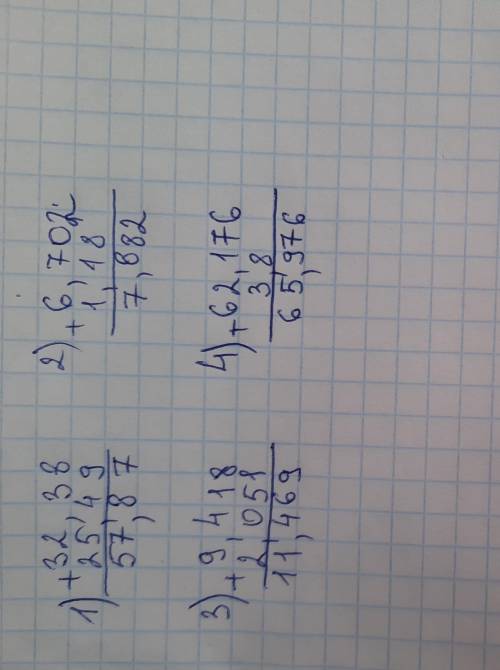 1) +32,38
25,49
57,87
2) +6,702
1,18
7,882
3) +9,418
2,051
11,469
4) +62,176
3,8
65,976